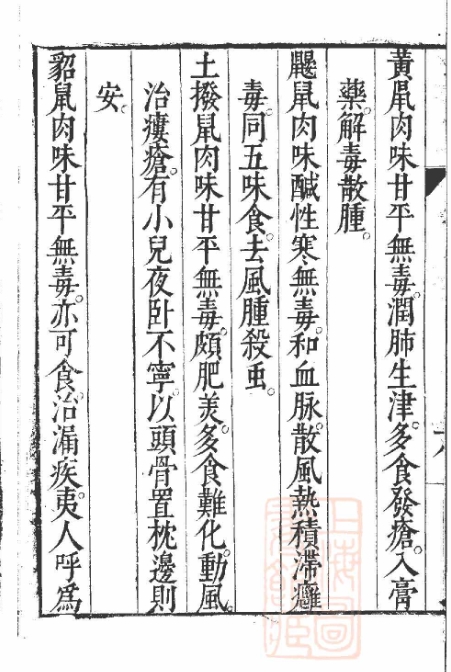 黃鼠肉味甘平無毒。潤肺生津。多食發瘡。入膏
藥。解毒散腫。
鼴鼠肉味鹹性寒無毒。和血脉。散風熱積滯。癰
毒。同五味食。去風腫殺虫。
土撥鼠肉味甘平無毒。頗肥美。多食難化。動風。
治瘻瘡。有小兒夜卧不寧。以頭骨置枕邊則
安。
貂鼠肉味甘平無毒。亦可食。治漏疾。夷人呼爲